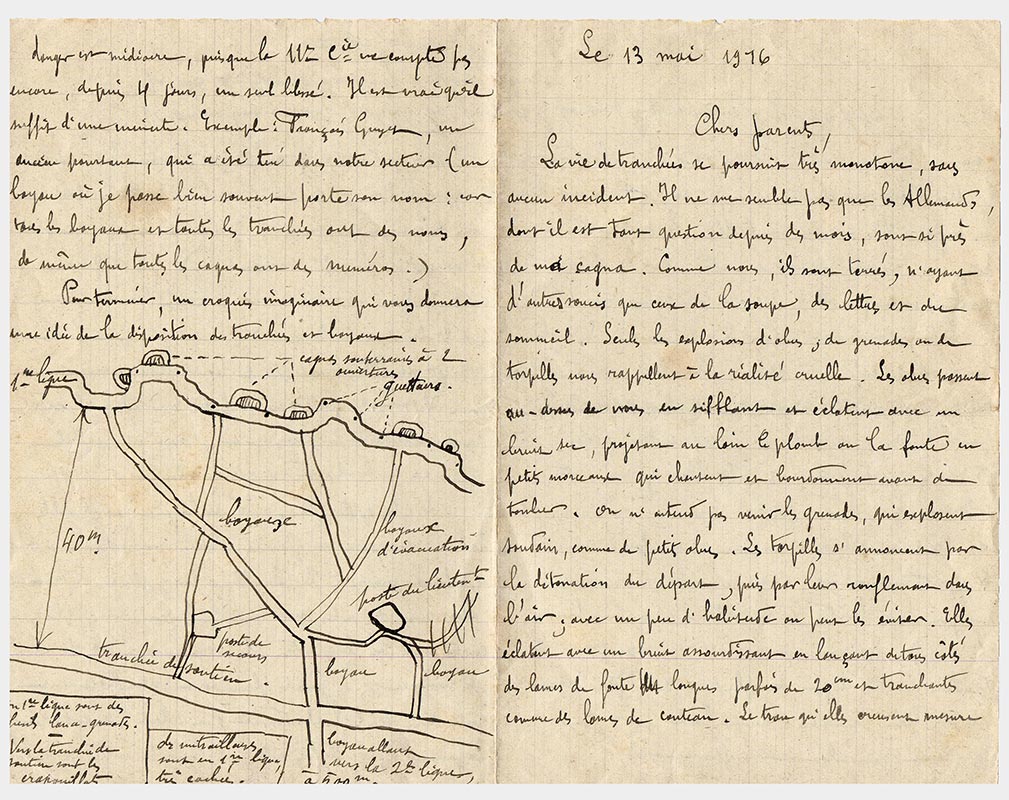 Le 13 mai 1916
Chers parents,
La vie de tranchées se poursuit très monotone, sans
aucun incident. Il ne me semble pas que les Allemands,
dont il est tant question depuis des mois, sont si près
de ma cagna. Comme nous, ils sont terrés, n'ayant
d'autres soucis que ceux de la soupe, des lettres et du
sommeil. Seuls les explosions d'obus, de grenades ou de
torpilles nous rappellent à la réalité cruelle. Les obus passent
au-dessus de nous en sifflant et éclatent avec un
bruit sec, projetant au loin le plomb ou la fonte en
petits morceaux qui chantent et bourdonnent avant de
tomber. On n'entend pas venir les grenades, qui explosent
soudain, comme de petits obus. Les torpilles s'annoncent par
la détonation du départ, puis par leur ronflement dans
l'air; avec un peu d'habitude on peut les éviter. Elles
éclatent avec un bruit assourdissant en lançant de tous côtés
des lames de fonte longues parfois de 20cm et tranchantes
comme des lames de couteau. Le trou qu'elles creusent mesure
danger est médiocre, puisque la 11e Cie ne compte pas
encore, depuis 4 jours, un seul blessé. Il est vrai qu'il
suffit d'une minute. Exemple: François Guyet, un
ancien pourtant, qui a été tué dans notre secteur (un
boyau où je passe bien souvent porte son nom: car
tous les boyaux et toutes les tranchées ont des noms,
de même que toutes les cagnas ont des numéros.)
Pour terminer, un croquis imaginaire qui vous donnera
une idée de la disposition des tranchées et boyaux.
1re ligne
cagnas souterraines à 2
ouvertures
guetteurs.
40m
boyaux
boyaux
d'évacuation
poste du lieutent
poste de
secours
tranchée de soutien.
boyau
boyau
en 1re ligne sont des
lance-grenades.
Vers la tranchée de
soutien sont les
crapouillots
des mitrailleuses
sont en 1re ligne,
très cachées.
boyau allant
vers la 2e ligne,
à 500m.